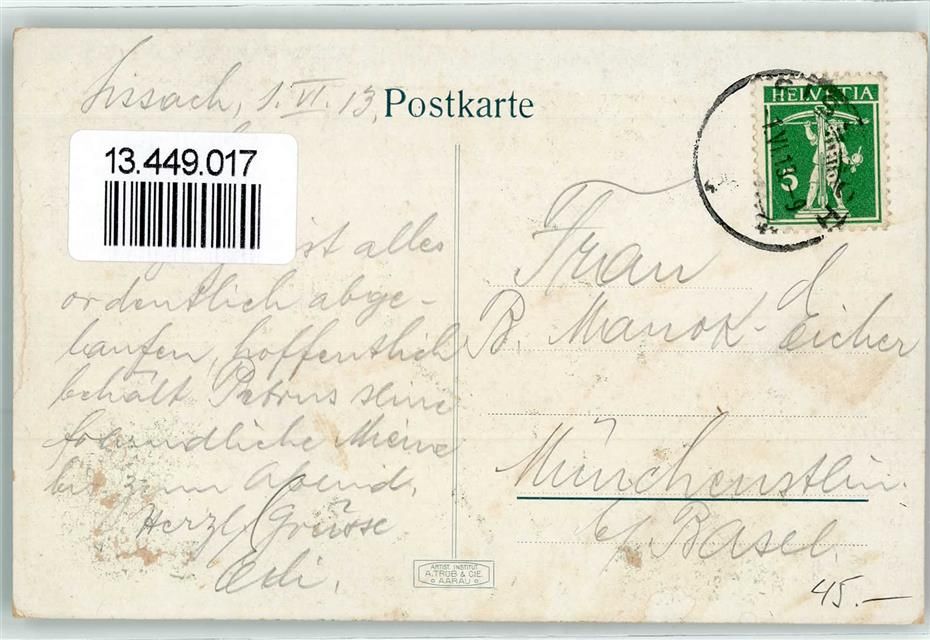 Sissach, 1. VI. 13.
Postkarte
13.449.017
ist alles
ordentlich abge-
laufen, hoffentlich
behält Petrus seine
freundliche Miene
bis zum Abend.
Herzl. Grüsse
Edi.
HELVETIA
5
1.VI.13.-9
Frau
B. Manok-Eicher
Münchenstein.
b/Basel.
ARTIST. INSTITUT
A. TRÜB & CIE.
AARAU
45.—